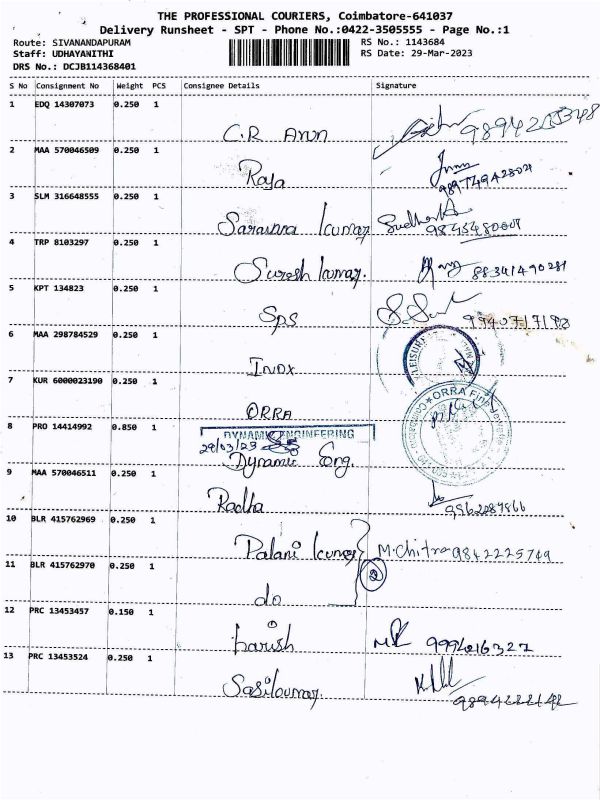 THE PROFESSIONAL COURIERS, Coimbatore-641037
Delivery Runsheet - SPT - Phone No.:0422-3505555 - Page No.:1
Route: SIVANANDAPURAM RS No.: 1143684
Staff: UDHAYANITHI RS Date: 29-Mar-2023
DRS No.: DCJB114368401
S No Consignment No Weight PCS Consignee Details Signature
1 EDQ 14307073 0.250 1
C.R Arun
2 MAA 570046509 0.250 1
Raja
3 SLM 316648555 0.250 1
Saravana kumar
4 TRP 8103297 0.250 1
Suresh kumar.
5 KPT 134823 0.250 1
Sps
6 MAA 298784529 0.250 1
Inox
7 KUR 6000023190 0.250 1
ORRA
8 PRO 14414992 0.850 1
DYNAMIC ENGINEERING
29/03/23
Dynamic Eng.
9 MAA 570046511 0.250 1
Radha
10 BLR 415762969 0.250 1
Palani kumar M.Chitra 9842225749
11 BLR 415762970 0.250 1
2
do
12 PRC 13453457 0.150 1
harish 9994216322
13 PRC 13453524 0.250 1
Sasikumar